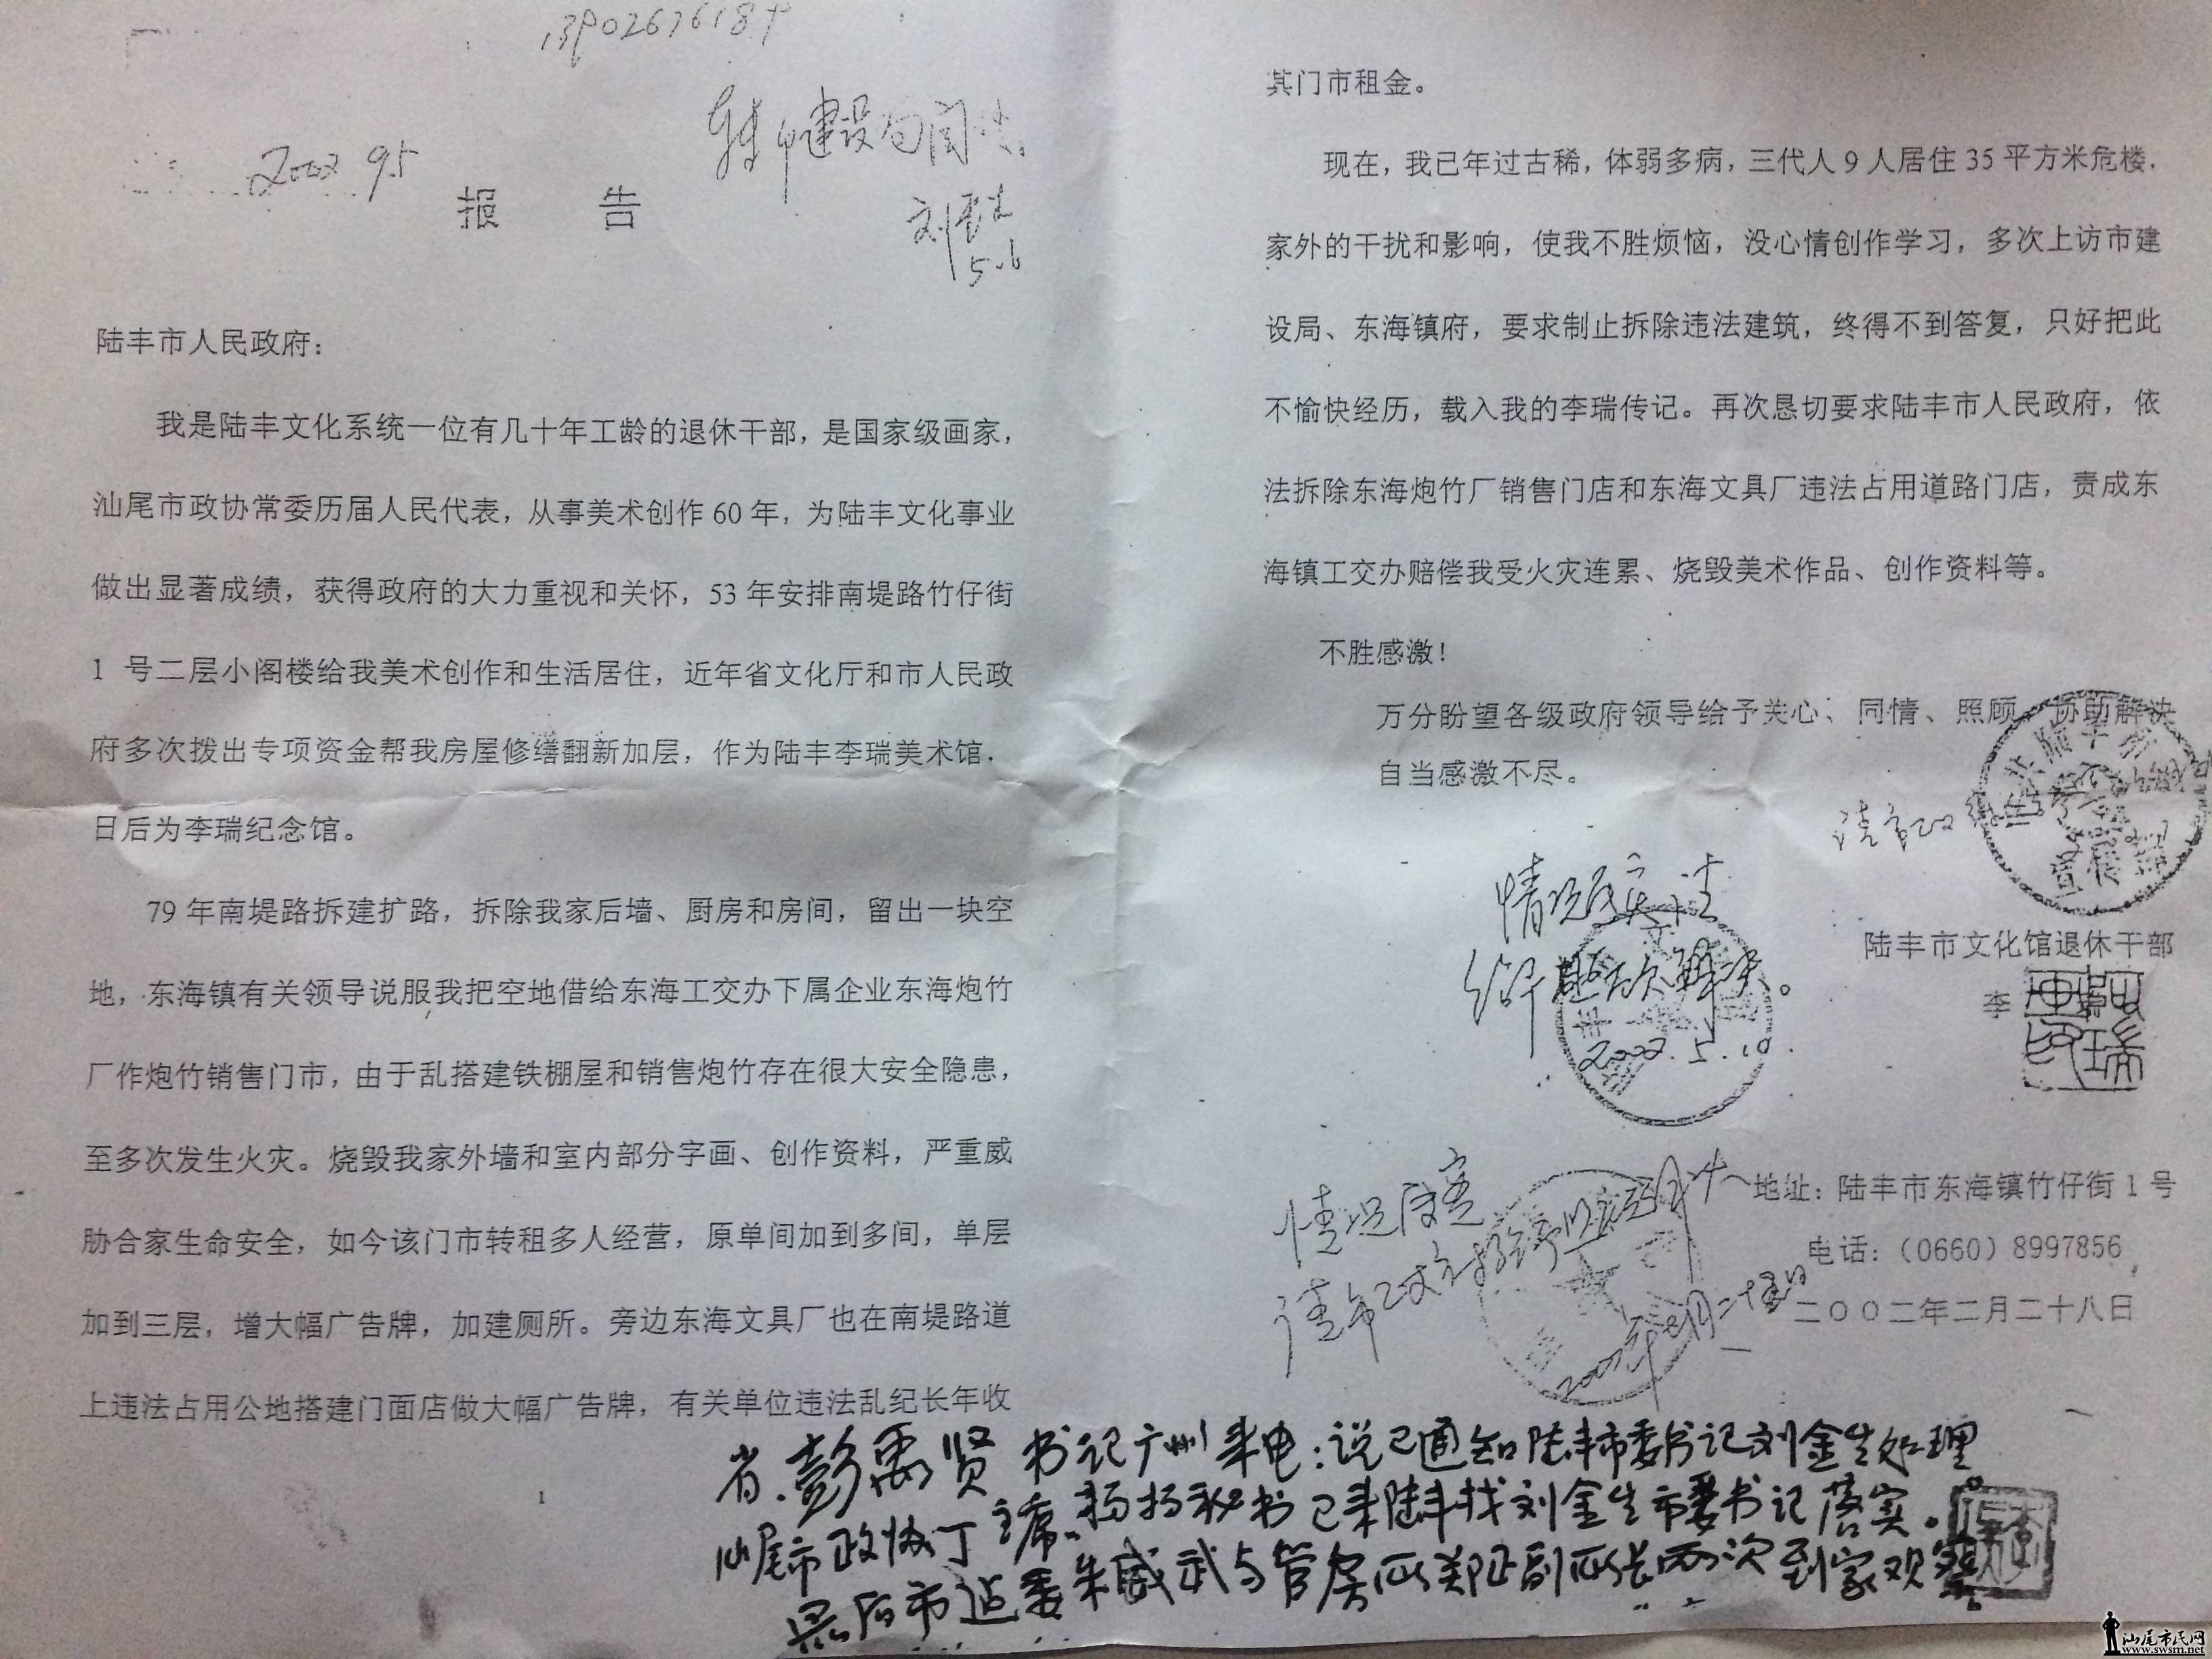 报 告
陆丰市人民政府：
我是陆丰文化系统一位有几十年工龄的退休干部，是国家级画家，
汕尾市政协常委历届人民代表，从事美术创作 60 年，为陆丰文化事业
做出显著成绩，获得政府的大力重视和关怀，53 年安排南堤路竹仔街
1 号二层小阁楼给我美术创作和生活居住，近年省文化厅和市人民政
府多次拨出专项资金帮我房屋修缮翻新加层，作为陆丰李瑞美术馆．
日后为李瑞纪念馆。
79 年南堤路拆建扩路，拆除我家后墙、厨房和房间，留出一块空
地，东海镇有关领导说服我把空地借给东海工交办下属企业东海炮竹
厂作炮竹销售门市，由于乱搭建铁棚屋和销售炮竹存在很大安全隐患，
至多次发生火灾。烧毁我家外墙和室内部分字画、创作资料，严重威
胁合家生命安全，如今该门市转租多人经营，原单间加到多间，单层
加到三层，增大幅广告牌，加建厕所。旁边东海文具厂也在南堤路道
上违法占用公地搭建门面店做大幅广告牌，有关单位违法乱纪长年收
1
其门市租金。
现在，我已年过古稀，体弱多病，三代人 9 人居住 35 平方米危楼．
家外的干扰和影响，使我不胜烦恼，没心情创作学习，多次上访市建
设局、东海镇府，要求制止拆除违法建筑，终得不到答复，只好把此
不愉快经历，载入我的李瑞传记。再次恳切要求陆丰市人民政府，依
法拆除东海炮竹厂销售门店和东海文具厂违法占用道路门店，责成东
海镇工交办赔偿我受火灾连累、烧毁美术作品、创作资料等。
不胜感激！
万分盼望各级政府领导给予关心、同情、照顾、协助解决
自当感激不尽。
情况属实，请
给予解决。
2002.5.10
陆丰市文化馆退休干部
李
地址：陆丰市东海镇竹仔街 1 号
电话：（0660）8997856
二〇〇二年二月二十八日
情况属实
省.彭禹贤书记广州来电：说已通知陆丰市委书记刘金生处理
汕尾市政协丁主席、杨扬秘书已来陆丰找刘金生市委书记落实。
最后市追委朱威武与管房所郑正副所长两次到家观察
汕尾市民网
www.swsm.net